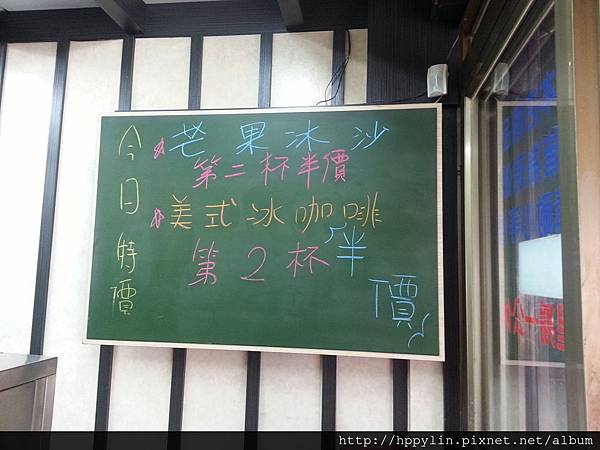 今日特價
芒果冰沙
第二杯半價
美式冰咖啡
第2杯半
價
http://hppylin.pixnet.net/album